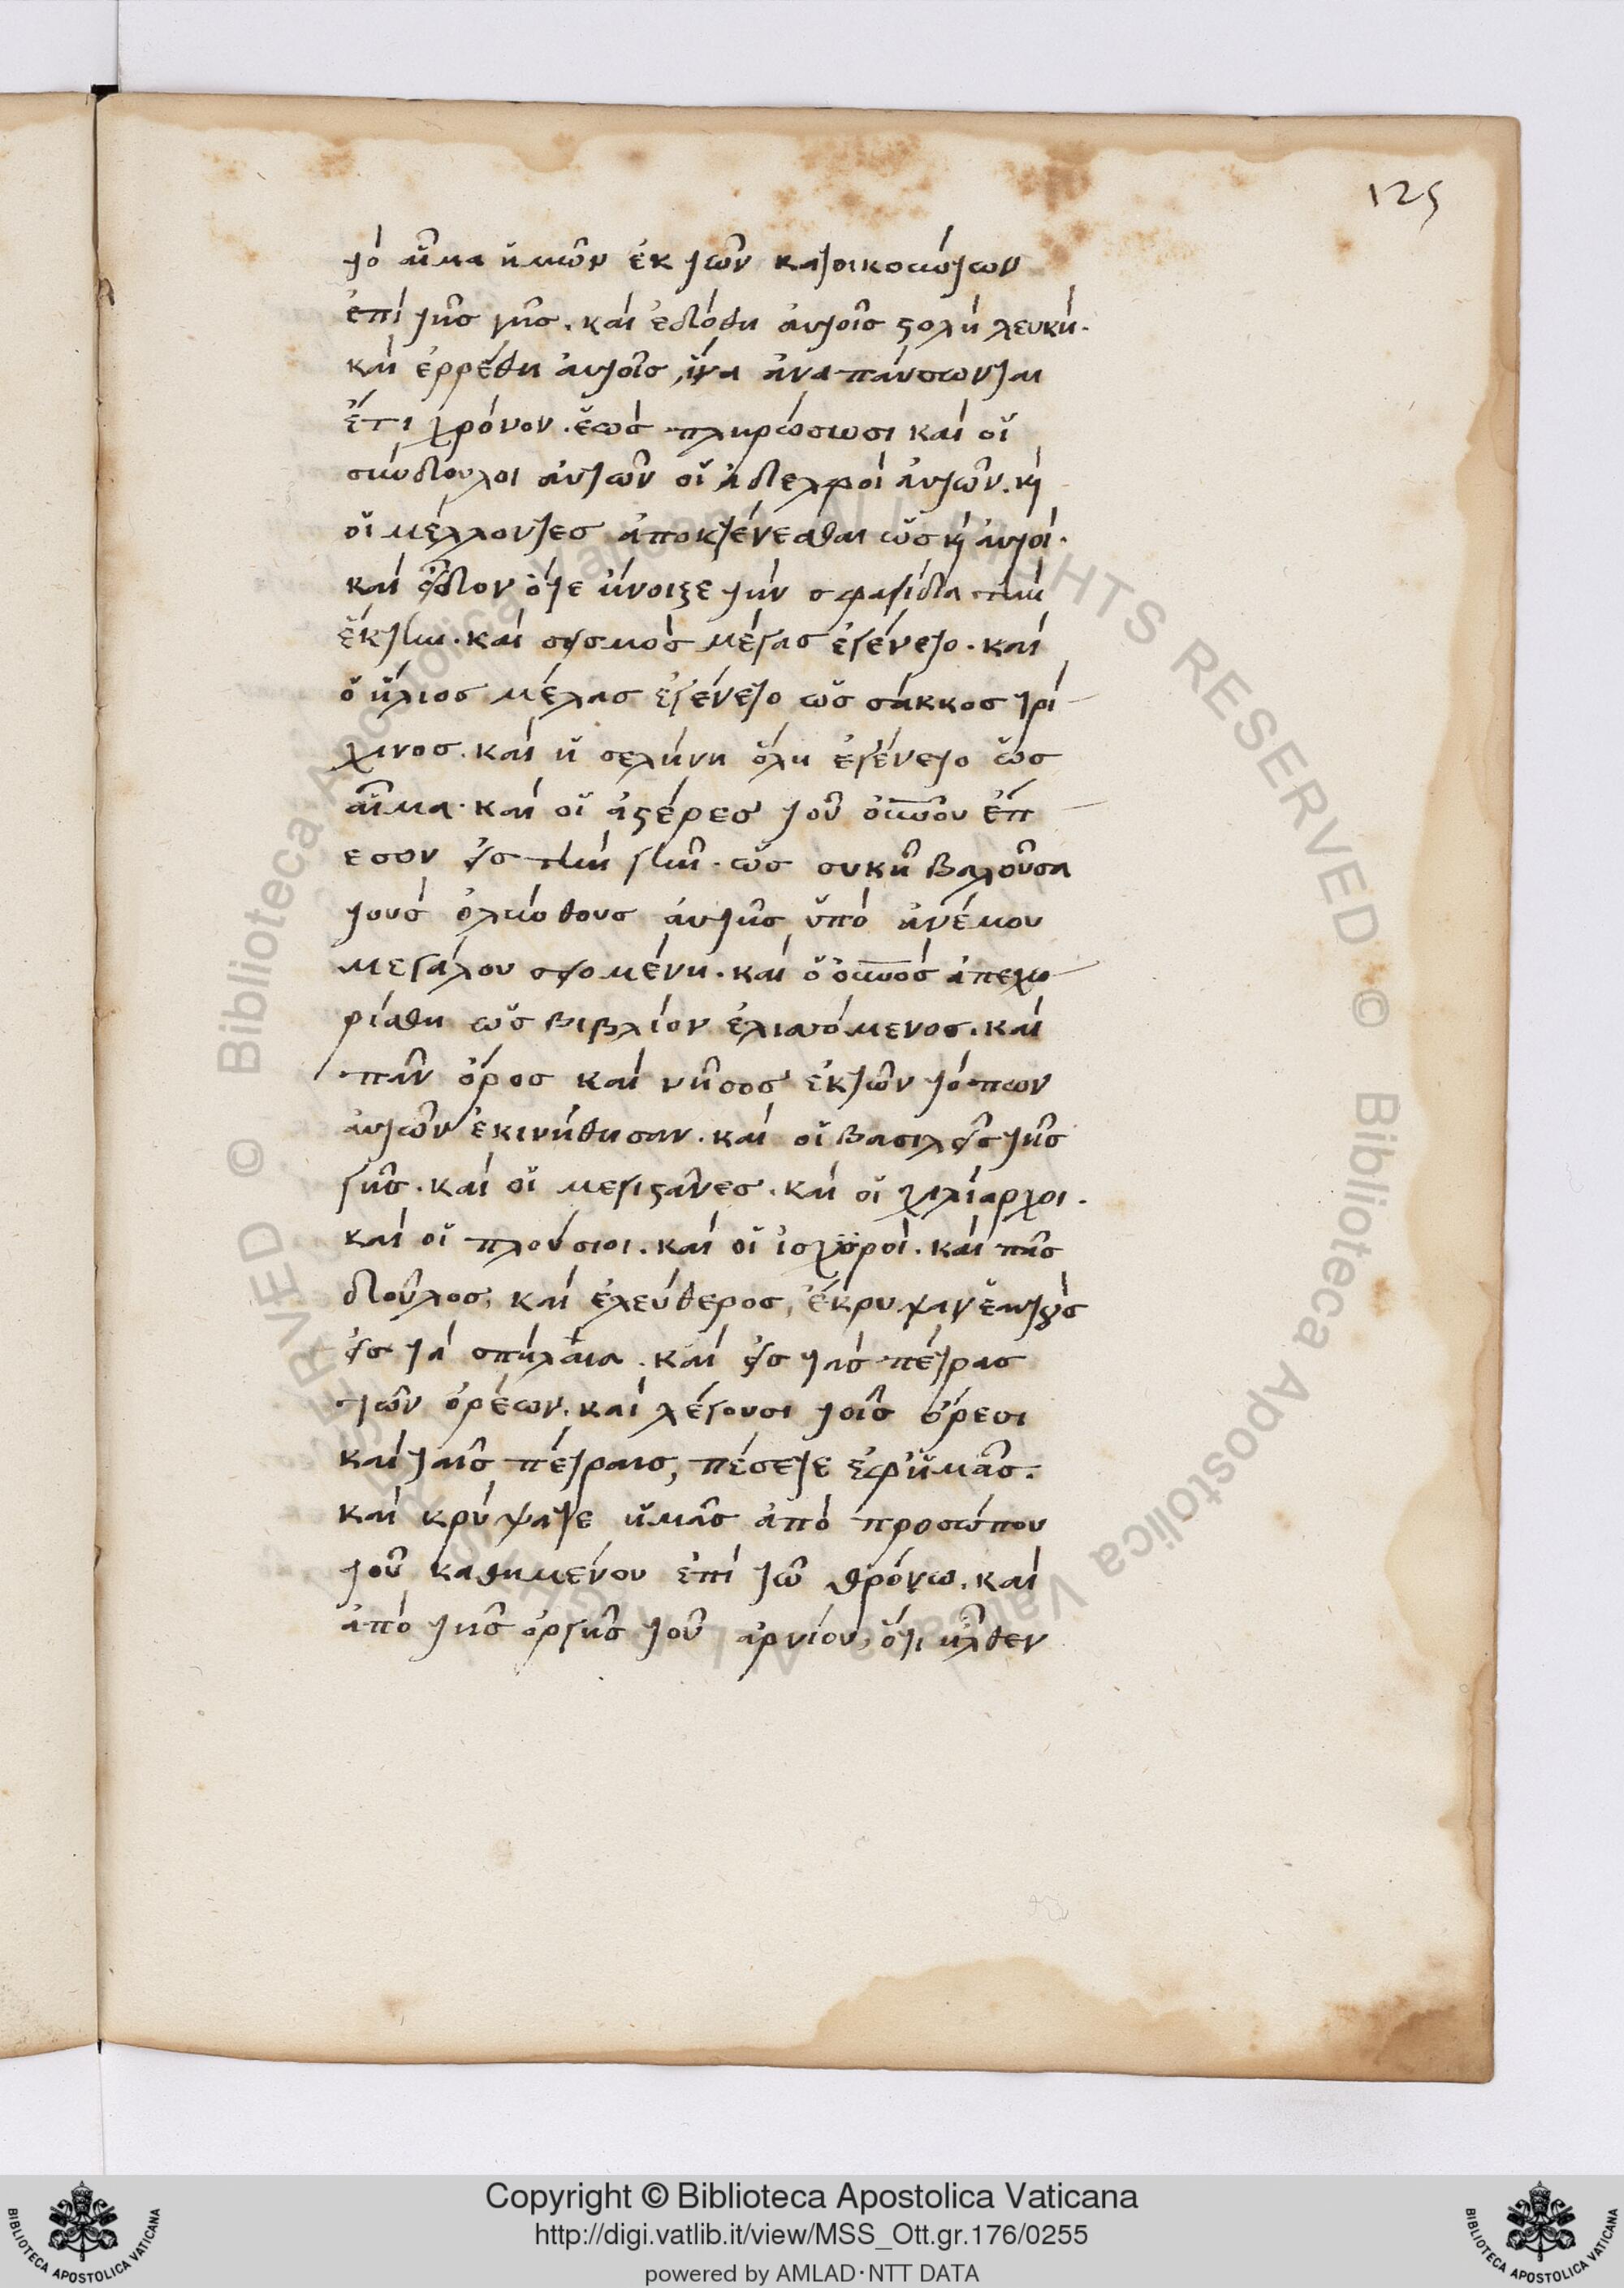 125
τὸ αἷμα ἡμῶν ἐκ τῶν κατοικούντων
ἐπὶ τῆς γῆς. καὶ ἐδόθη αὐτοῖς στολὴ λευκή.
καὶ ἐρρέθη αὐτοῖς, ἵνα ἀναπαύσωνται
ἔτι χρόνον. ἕως πληρώσωσι καὶ οἱ
σύνδουλοι αὐτῶν οἱ ἀδελφοὶ αὐτῶν. κỳ
οἱ μέλλοντες ἀποκτένεσθαι ὡς κỳ αὐτοί.
καὶ εἶδον ὅτε ἤνοιξε τὴν σφαγίδα τὴν
ἕκτην. καὶ σεισμὸς μέγας ἐγένετο. καὶ
ὁ ἥλιος μέλας ἐγένετο ὡς σάκκος τρί
χινος. καὶ ἡ σελήνη ὅλη ἐγένετο ὡς
αἷμα. καὶ οἱ ἀστέρες τοῦ οὐνοῦ ἔπ
εσον εἰς τὴν γῆν. ὡς συκῆ βαλοῦσα
τοὺς ὀλύνθους αὐτῆς ὑπὸ ἀνέμου
μεγάλου σειομένη. καὶ ὁ οὐνὸς ἀπεχω
ρίσθη ὡς βιβλίον ἑλισσόμενος. καὶ
πᾶν ὄρος καὶ νῆσος ἐκ τῶν τόπων
αὐτῶν ἐκινήθησαν. καὶ οἱ βασιλεῖς τῆς
γῆς. καὶ οἱ μεγιστᾶνες. καὶ οἱ χιλίαρχοι.
καὶ οἱ πλούσιοι. καὶ οἱ ἰσχυροί. καὶ πᾶς
δοῦλος, καὶ ἐλεύθερος, ἔκρυψαν ἑαυτοὺς
εἰς τὰ σπήλαια. καὶ εἰς τὰς πέτρας
τῶν ὀρέων. καὶ λέγουσι τοῖς ὄρεσι
καὶ ταῖς πέτραις, πέσετε ἐφ' ἡμᾶς.
καὶ κρύψατε ἡμᾶς ἀπὸ προσώπου
τοῦ καθημένου ἐπὶ τῶ θρόνω. καὶ
ἀπὸ τῆς ὀργῆς τοῦ ἀρνίου, ὅτι ἦλθεν
Copyright © Biblioteca Apostolica Vaticana
http://digi.vatlib.it/view/MSS_Ott.gr.176/0255
powered by AMLAD·NTT DATA